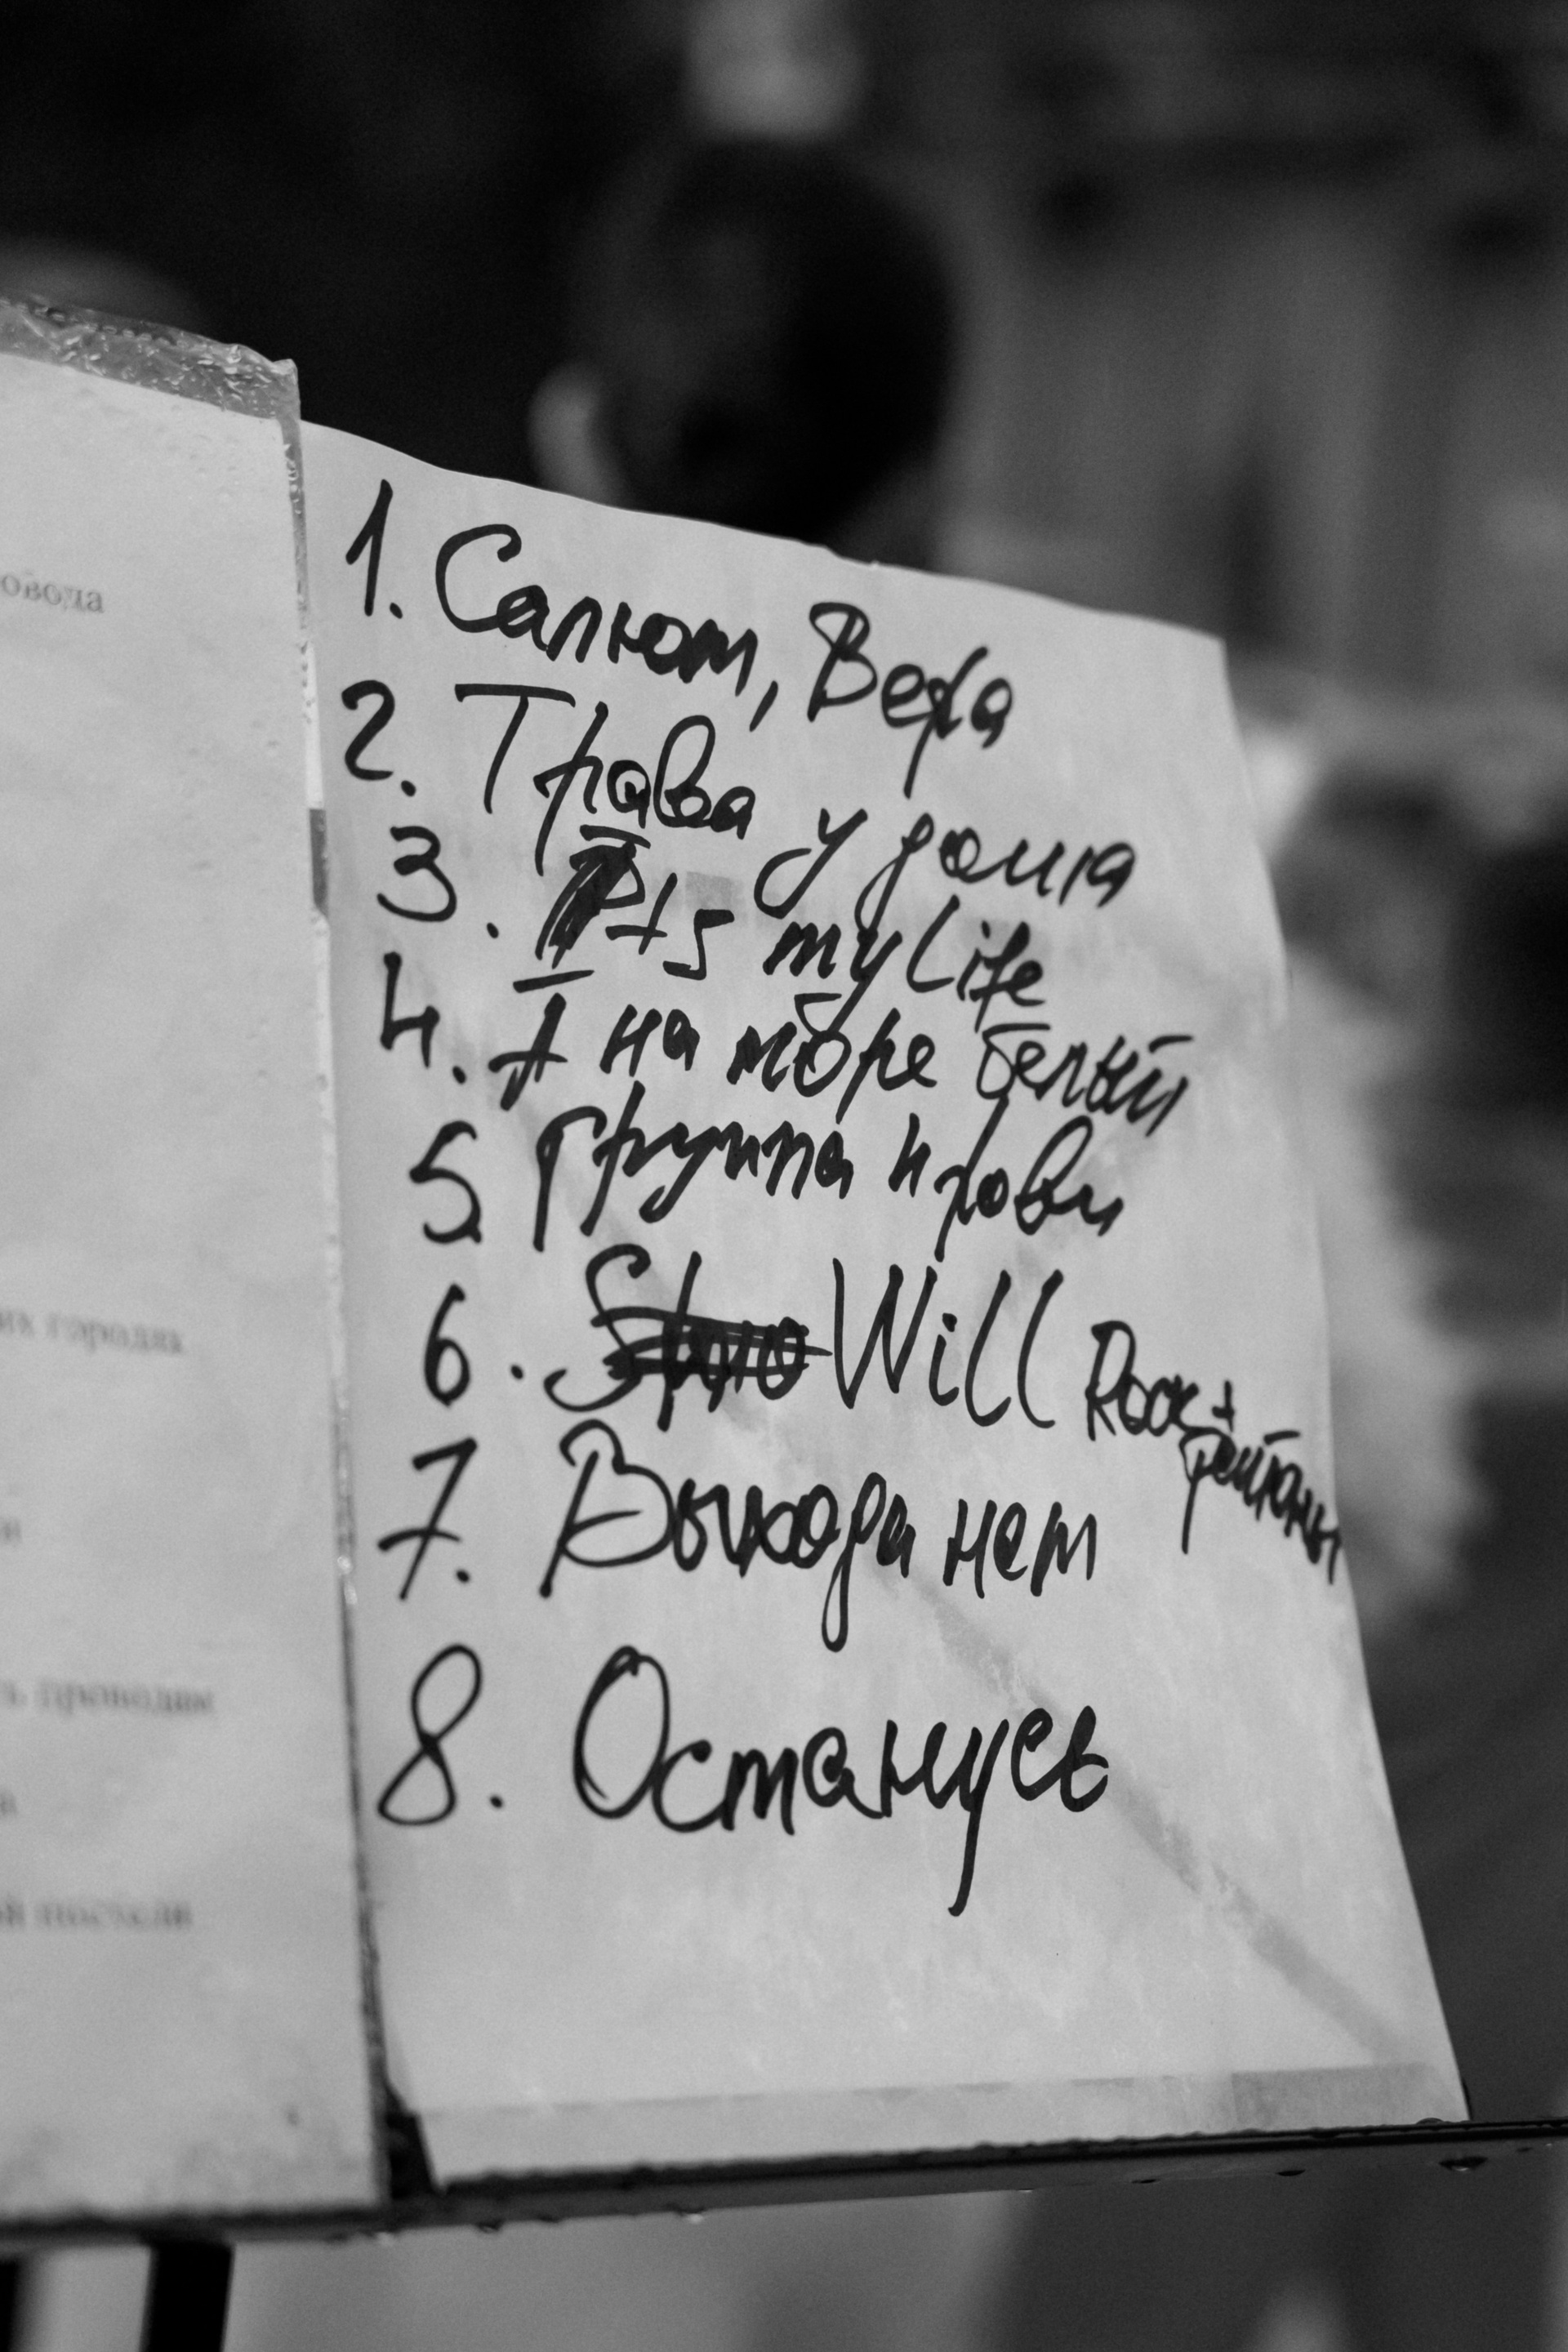 овода
их городах
ь проводам
а
й постели
1. Салют, Вера
2. Трава у дома
3. Its my life
4. А на море белый
5. Группа крови
6. Will Rock +
7. Выхода нет
8. Останусь